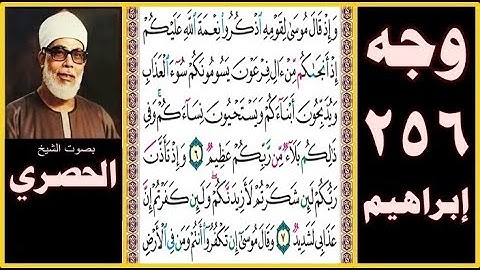 وجه
٢٥٦
إبراهيم
وَإِذْ قَالَ مُوسَىٰ لِقَوْمِهِ اذْكُرُوا نِعْمَةَ اللَّهِ عَلَيْكُمْ
إِذْ أَنجَىٰكُم مِّنْ ءَالِ فِرْعَوْنَ يَسُومُونَكُمْ سُوٓءَ الْعَذَابِ
وَيُذَبِّحُونَ أَبْنَآءَكُمْ وَيَسْتَحْيُونَ نِسَآءَكُمْ وَفِى
ذَٰلِكُم بَلَآءٌ مِّن رَّبِّكُمْ عَظِيمٌ ٦ وَإِذْ تَأَذَّنَ
رَبُّكُمْ لَئِن شَكَرْتُمْ لَأَزِيدَنَّكُمْ وَلَئِن كَفَرْتُمْ إِنَّ
عَذَابِى لَشَدِيدٌ ٧ وَقَالَ مُوسَىٰ إِن تَكْفُرُوا أَنتُمْ وَمَن فِى الْأَرْضِ
بصوت الشيخ
الحصري